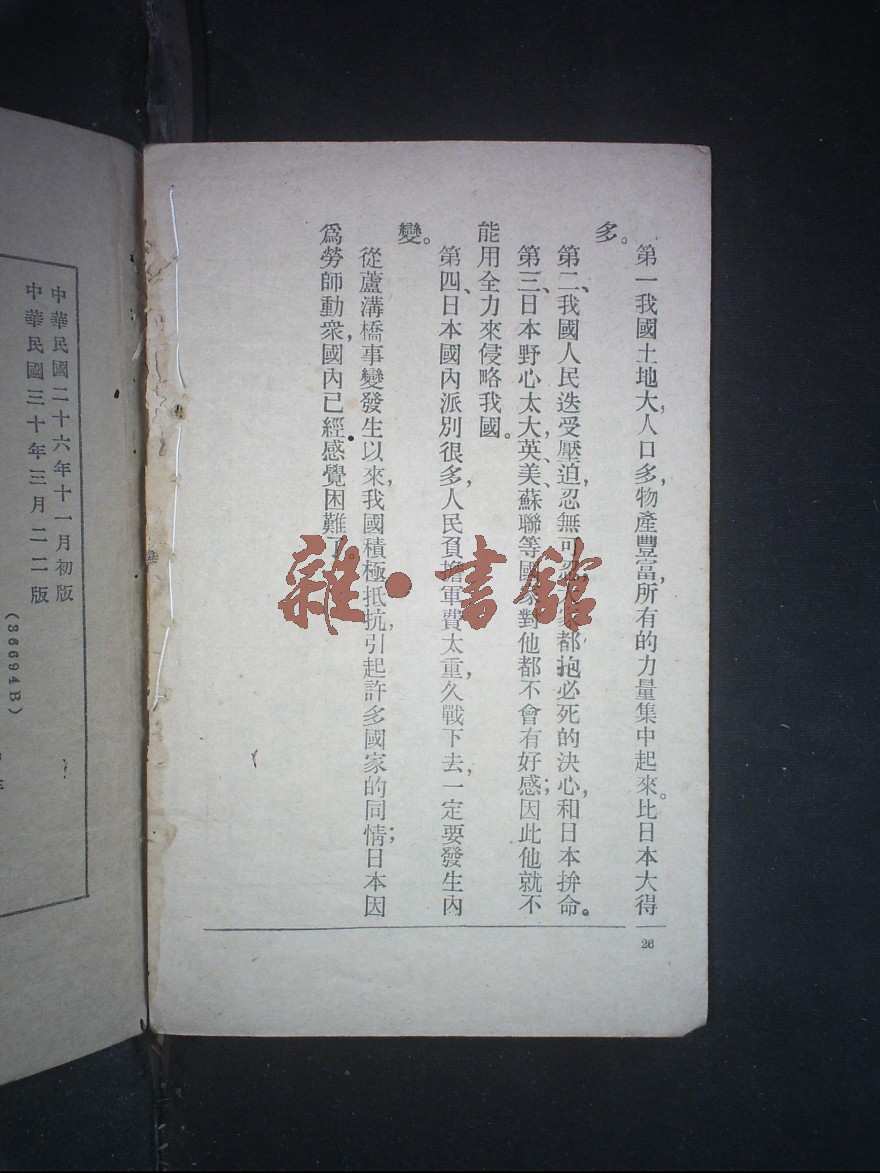 第一我國土地大,人口多,物產豐富,所有的力量集中起來。比日本大得
多。
第二、我國人民迭受壓迫,忍無可忍,家都抱必死的決心,和日本拚命。
第三、日本野心太大,英、美、蘇聯等國家對他都不會有好感;因此他就不
能用全力來侵略我國。
第四、日本國內派別很多,人民負擔軍費太重,久戰下去,一定要發生內
變。
從蘆溝橋事變發生以來,我國積極抵抗,引起許多國家的同情;日本因
爲勞師動衆,國內已經感覺困難了。
26
雜·書館
中華民國二十六年十一月初版
中華民國三十年三月二二版
(86694B)